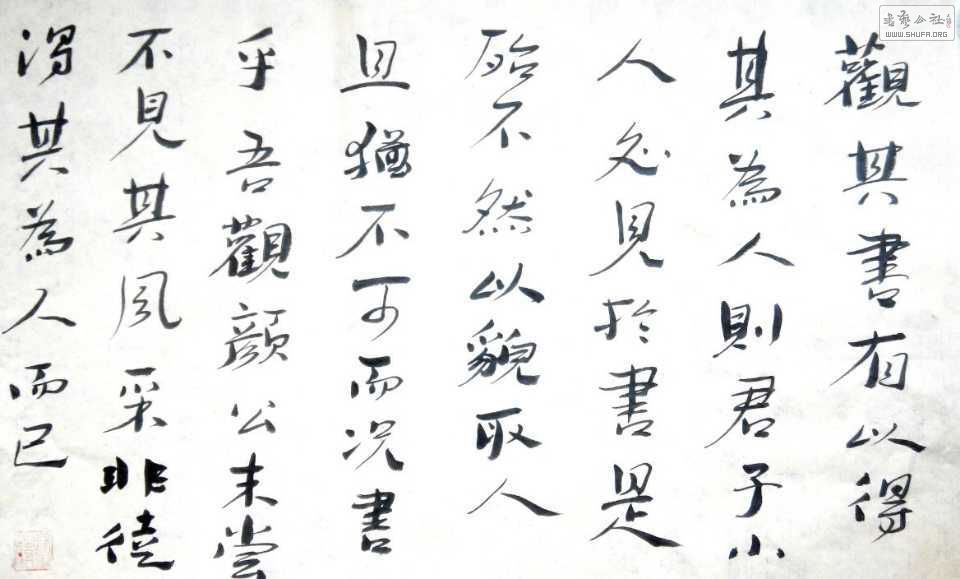 觀其書有以得
其為人則君子小
人必見於書是
殆不然以貌取人
且猶不可而況書
乎吾觀顏公未嘗
不見其風采非徒
得其為人而已
书艺公社
WWW.SHUFA.ORG